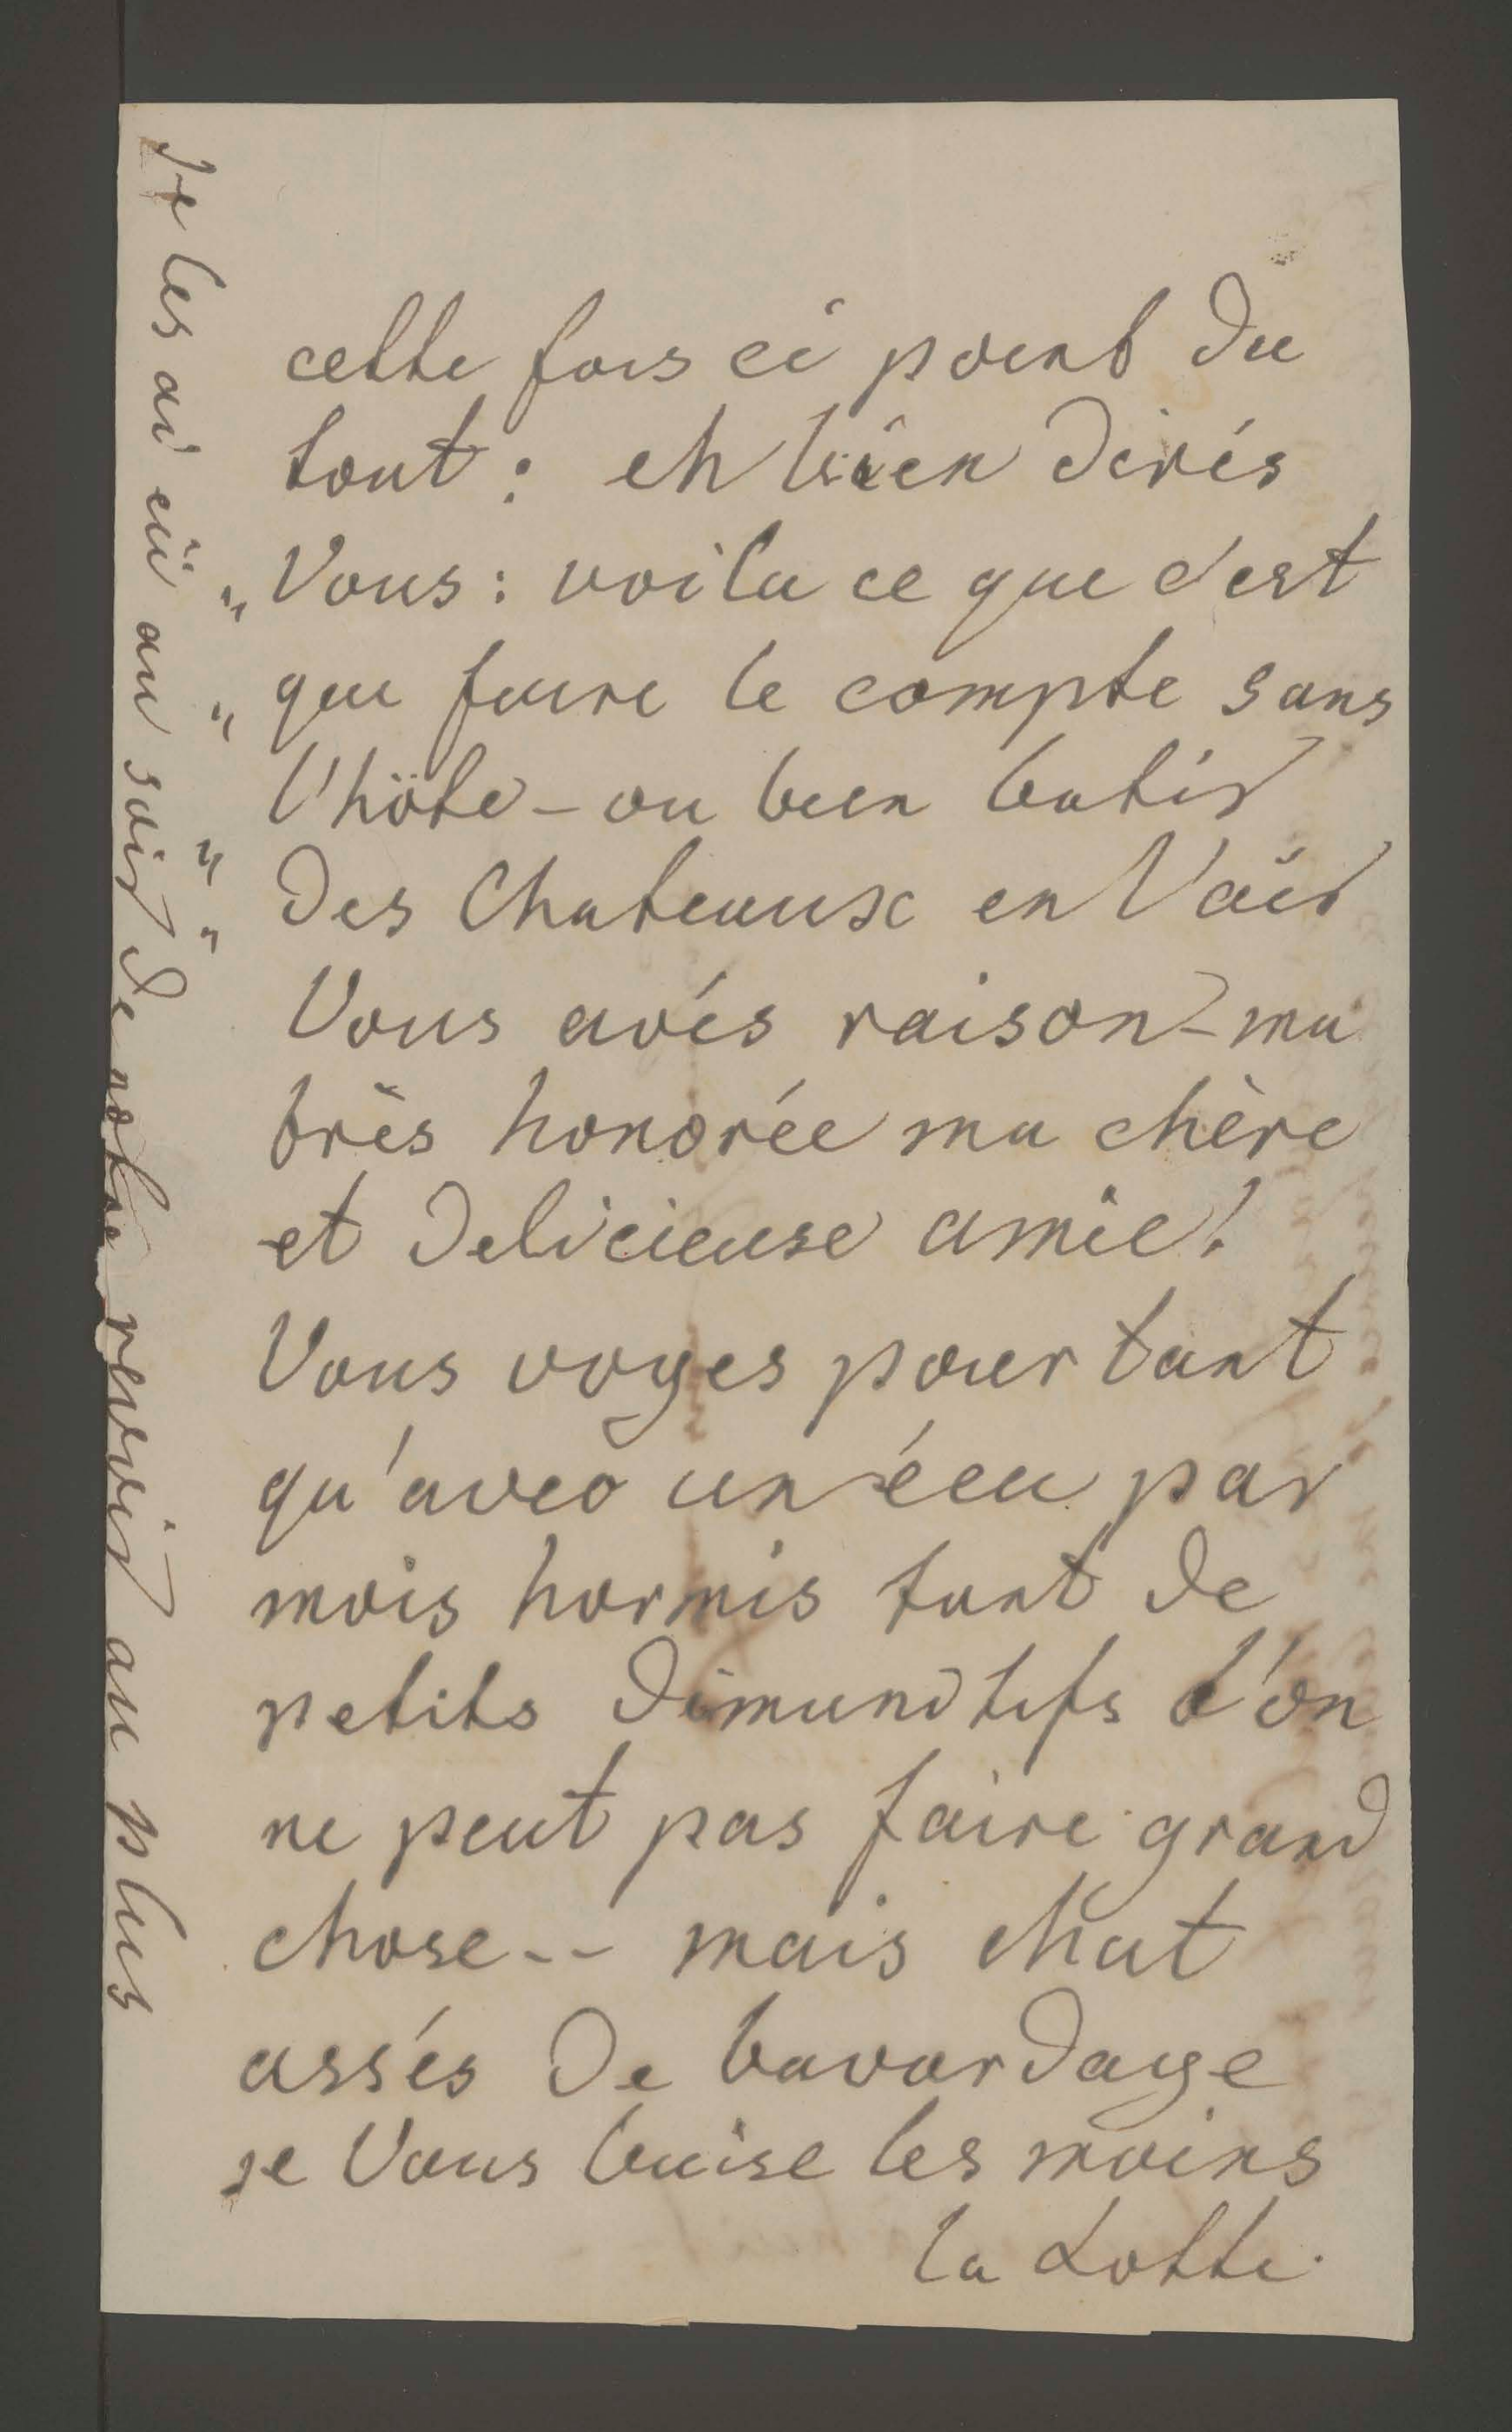 cette fois ci point du
tout : eh bien dirés
Vous : voila ce que c'est
que faire le compte sans
l'hôte - ou bien batir
des Chateaux en l'air
Vous avés raison - ma
très honorée ma chère
et delicieuse amie!
Vous voyes pourtant
qu'avec un écu par
mois hormis tant de
petits dimunitifs l'on
ne peut pas faire grand
chose -- mais chut
assés de bavardage
je Vous baise les mains
la Lotte.
je les ai eü au soir de notre revoir au plus